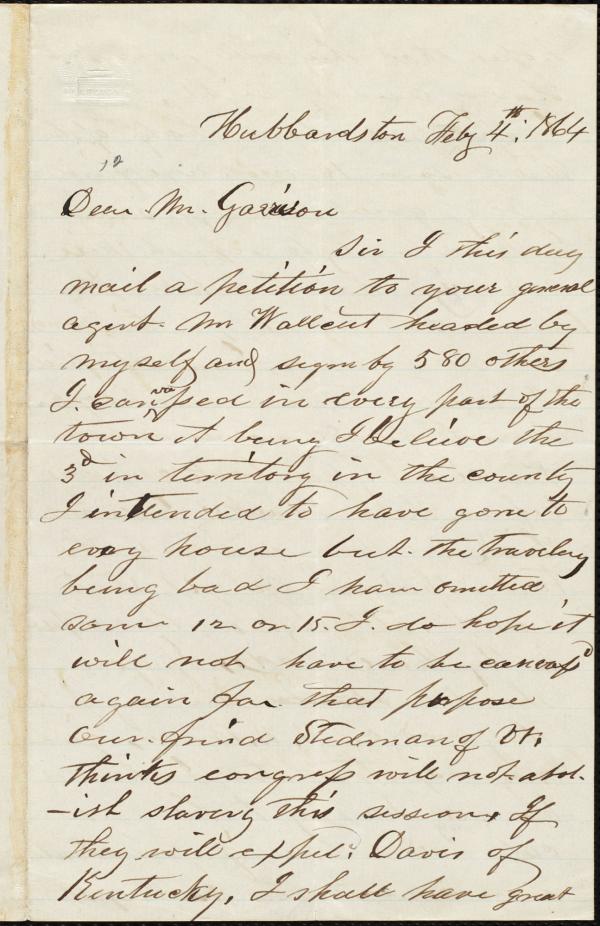 Hubbardston Feby 4th, 1864
12
Dear Mr. Garrison
Sir I this day
mail a petition to your general
agent. Mr Wallcut headed by
myself and sign by 580 others
I. canvassed in every part of the
town it being I believe the
3d in territory in the county
I intended to have gone to
evry house but the traveling
being bad I have omitted
some 12 or 15. I. do hope it
will not have to be canvasd
again for that purpose
Our. frind Stedman of Vt.
thinks congress will not abol-
-ish slavery this session. If
they will expel. Davis of
Kentucky, I shall have great